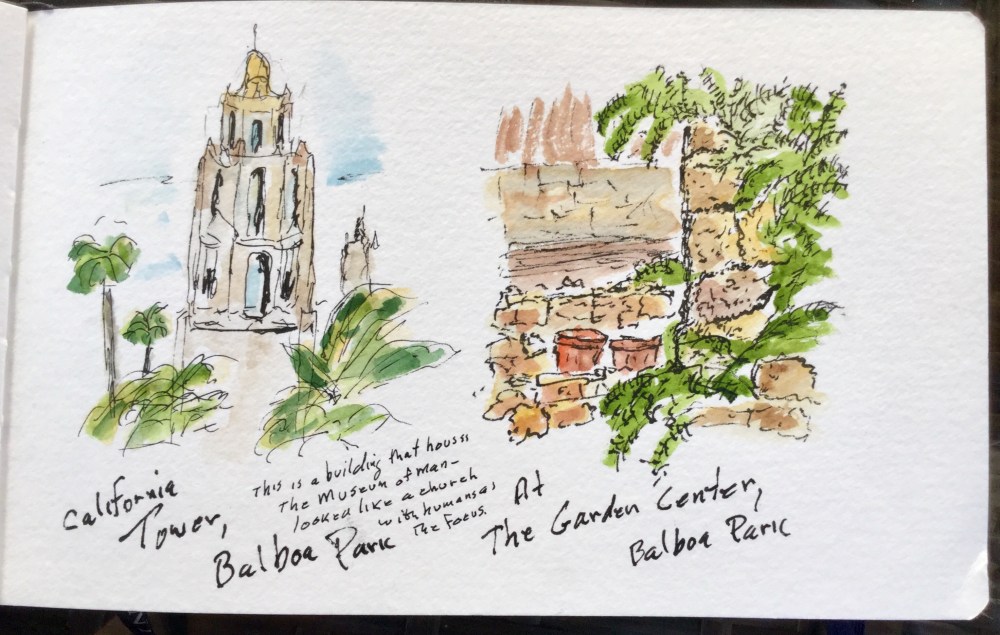 California
Tower,
Balboa Park
This is a building that houses
The Museum of Man—
looked like a church
with humans as
The Focus.
At
The Garden Center,
Balboa Park